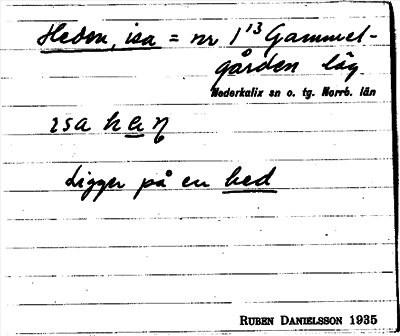 Heden, isa = nr 1¹³ Gammel-
gården läg
Nederkalix sn o. tg. Norrb. län
ısa heņ
Ligger på en hed
RUBEN DANIELSSON 1935